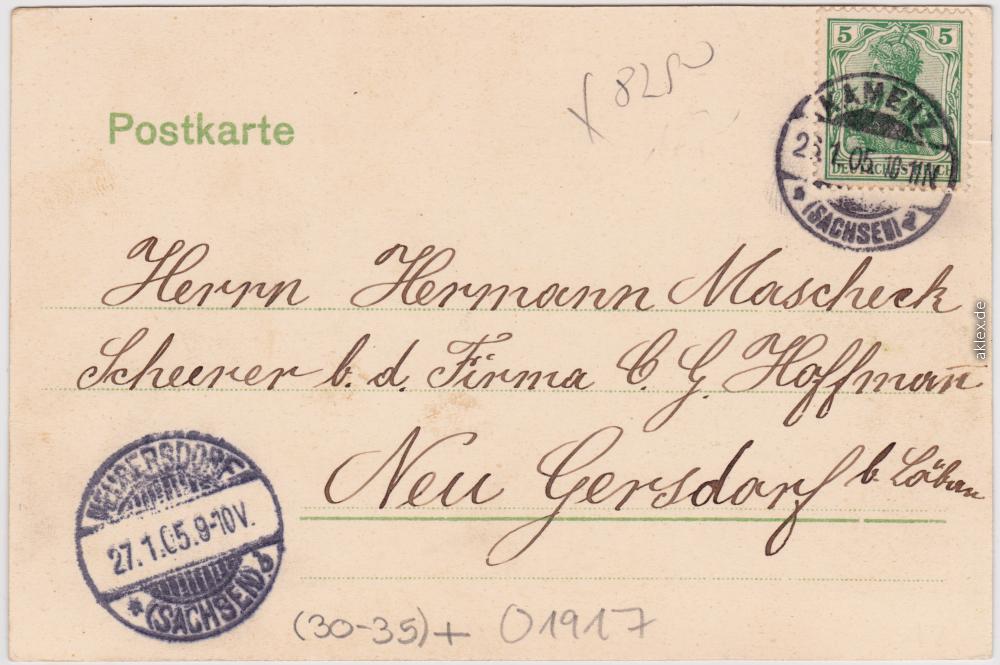 5 5
DEUTSCHES REICH
KAMENZ
1.05.10-11N
(SACHSEN)
Postkarte
8250
Herrn Hermann Mascheck
Scheerer b. d. Firma C. G. Hoffmann̄
Neu Gersdorf b. Löbau
NEUGERSDORF
27.1.05.9-10V.
*(SACHSEN)
(30-35)+ 01917
aklex.de